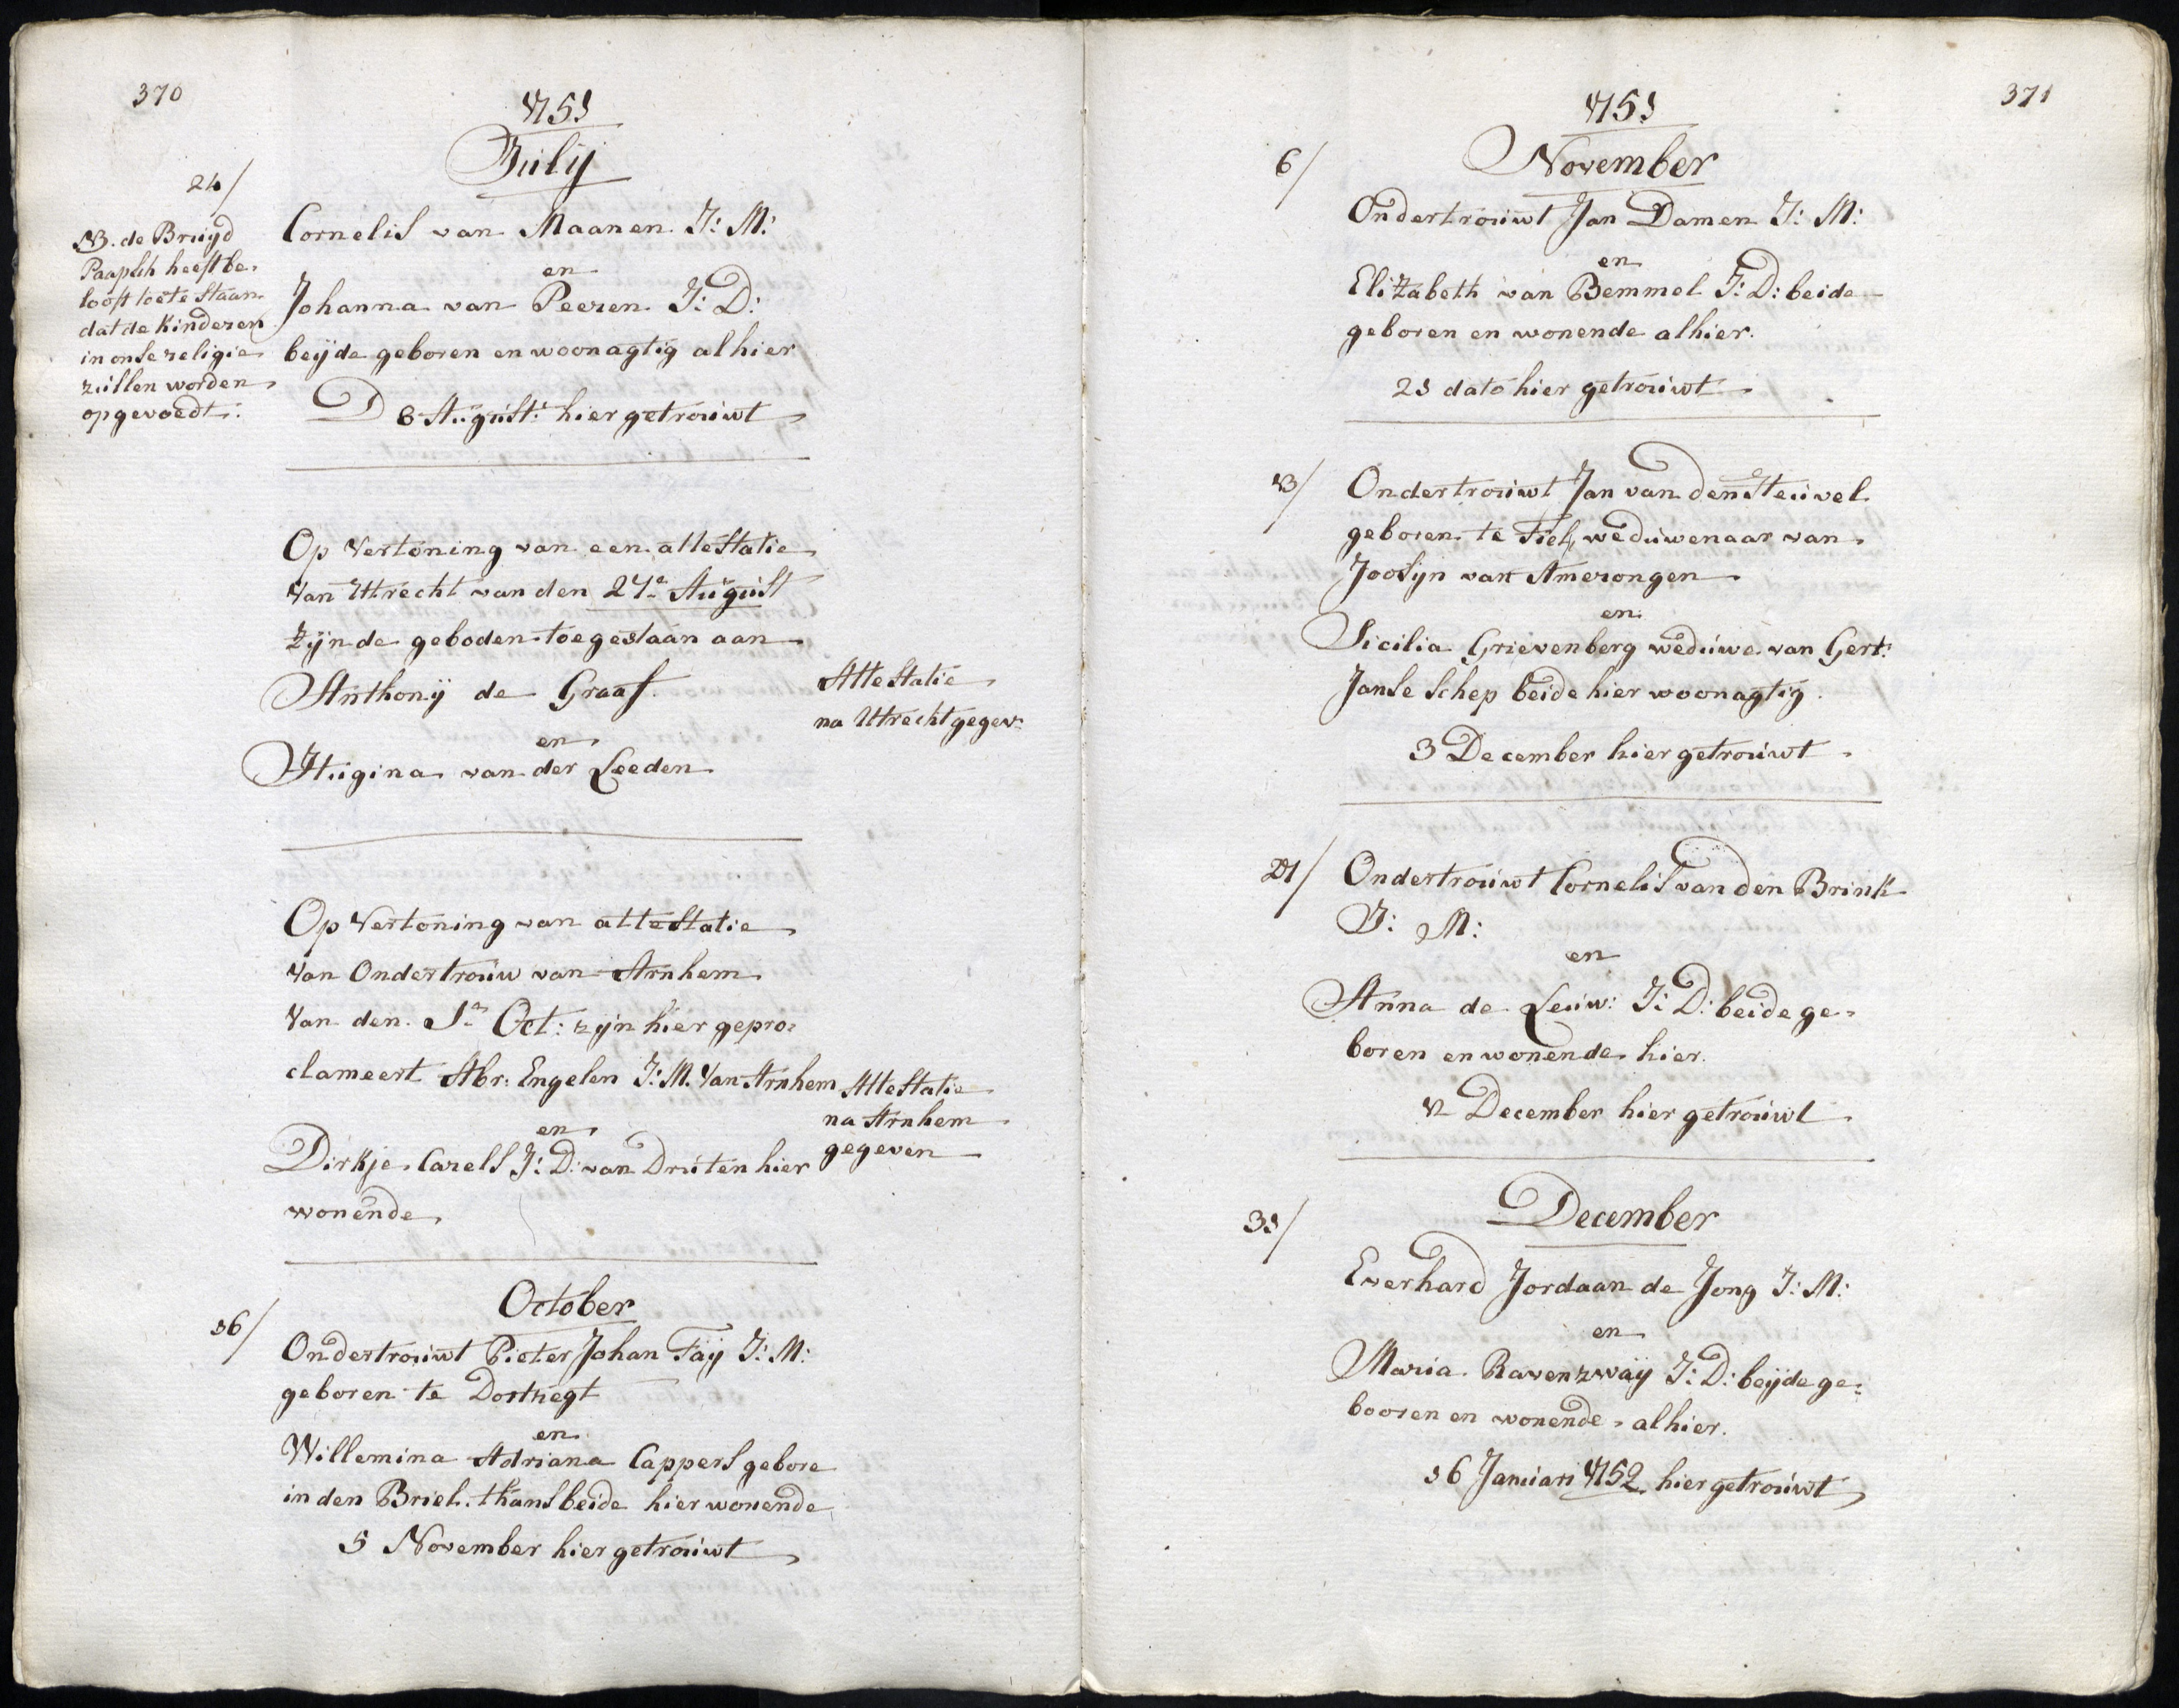 370
1751
Julij
24/
NB. de Bruijd
Paapsch heeft be-
looft toe te staan
dat de Kinderen
in onse religie
zullen worden
opgevoedt:
Cornelis van Maanen J: M:
en
Johanna van Peeren J: D:
beijde geboren en woonagtig alhier
D 6 August: hier getrouwt
Op Vertoning van een attestatie
Van Utrecht van den 27e August
zijn de geboden toegestaan aan
Anthonij de Graaf
en
Hugina van der Leeden
Attestatie
na Utrecht gegev:
Op Vertoning van attestatie
Van Ondertrouw van Arnhem
Van den 1e Oct: zijn hier gepro-
clameert Abr: Engelen J: M. Van Arnhem
en
Dirkje Carels J: D: van Druten hier
wonende
Attestatie
na Arnhem
gegeven
October
16/
Ondertrouwt Pieter Johan Faij J: M:
geboren te Dortregt
en
Willemina Adriana Cappers gebore
in den Briel. thans beide hier wonende
5 November hier getrouwt
371
1751
November
6/
Ondertrouwt Jan Damen J: M:
en
Elizabeth van Bemmel J: D: beide
geboren en wonende alhier.
21 dato hier getrouwt
13/
Ondertrouwt Jan van den Steuvel
geboren te Tiel, weduwenaar van
Joosijn van Amerongen
en
Sicilia Grievenberg weduwe van Gert:
Janse Schep beide hier woonagtig.
3 December hier getrouwt
21/
Ondertrouwt Cornelis van den Brink
J: M:
en
Anna de Leuw: J: D: beide ge-
boren en wonende hier.
12 December hier getrouwt
December
31/
Everhard Jordaan de Jong J: M:
en
Maria Ravenzwaij J: D: beijde ge-
booren en wonende alhier.
16 Januari 1752 hier getrouwt